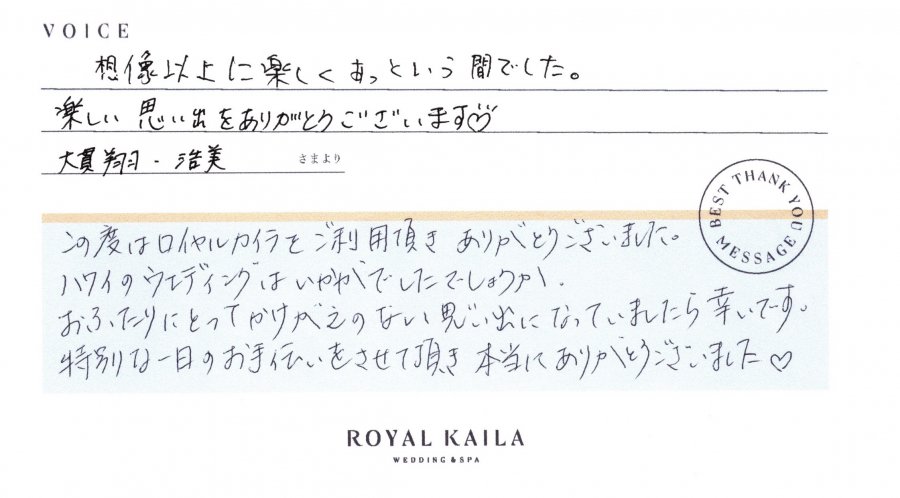 VOICE
想像以上に楽しくあっという間でした。
楽しい思い出をありがとうございます♡
大貫翔羽・浩美 さまより
BEST THANK YOU MESSAGE
この度はロイヤルカイラをご利用頂きありがとうございました。
ハワイのウェディングはいかがでしたでしょうか。
おふたりにとってかけがえのない思い出になっていましたら幸いです。
特別な一日のお手伝いをさせて頂き本当にありがとうございました♡
ROYAL KAILA
WEDDING & SPA